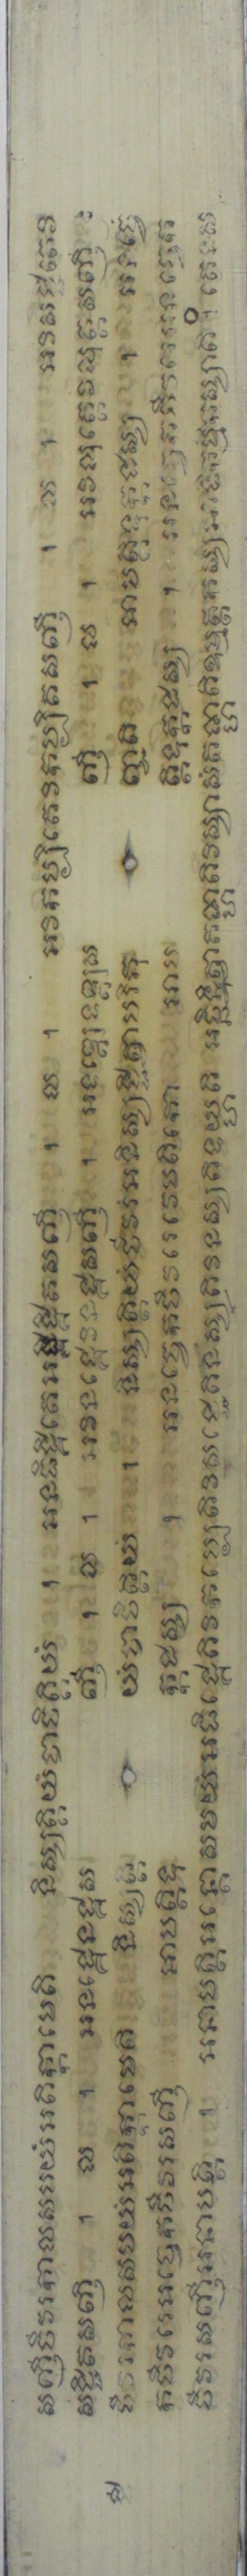 សញ្ញីចីវរកាលសមយំអតិក្កាមេតិ និស្សគ្គិយំបាចិត្តិយំ ។ អនធិដ្ឋិតេអធិដ្ឋិតសញ្ញី ។ ល ។ អវិកប្បិតេវិកប្បិតសញ្ញី ។ ល ។ អវិសជ្ជិតេវិ
សជ្ជិតសញ្ញី ។ ល ។ អនដ្ឋេនដ្ឋស ញ្ញី ។ ល ។ អវិនដ្ឋេវិនដ្ឋសញ្ញី ។ អទឌ្ឍេទឌ្ឍស ញ្ញី ។ ល ។ អវិលុត្តេវិលុត្តសញ្ញី
ចីវរកាលសមយំអតិក្កាមេតិ និស្សគ្គិ យំបាចិត្តិយំ ។ និស្សគ្គិយំចីវរំអនិស្សជ្ជិត្វាបរិភុ ញ្ជតិ អាបត្តិទុក្កដស្ស ។ អនច្ចេ
កចីវរេអច្ចេកចីវរសញ្ញី អាបត្តិទុ ក្កដស្ស ។ អនច្ចេកចីវរេវេមតិកោ អាប ត្តិទុក្កដស្ស ។ អនច្ចេកចីវរេអនច្ចេក
ចីវរសញ្ញីអនាបត្តិ ។ អនាបត្តិអន្តោសមយំអធិដ្ឋេតិវិកប្បេតិវិសជ្ជេតិនស្សតិវិនស្សតិឌយ្ហតិ អច្ឆិន្ទិត្វាគណ្ហតិវិស្សាសំគណ្ហតិឧម្មត្តកស្សអាទិកម្មិកស្សាតិ ។ តេនស